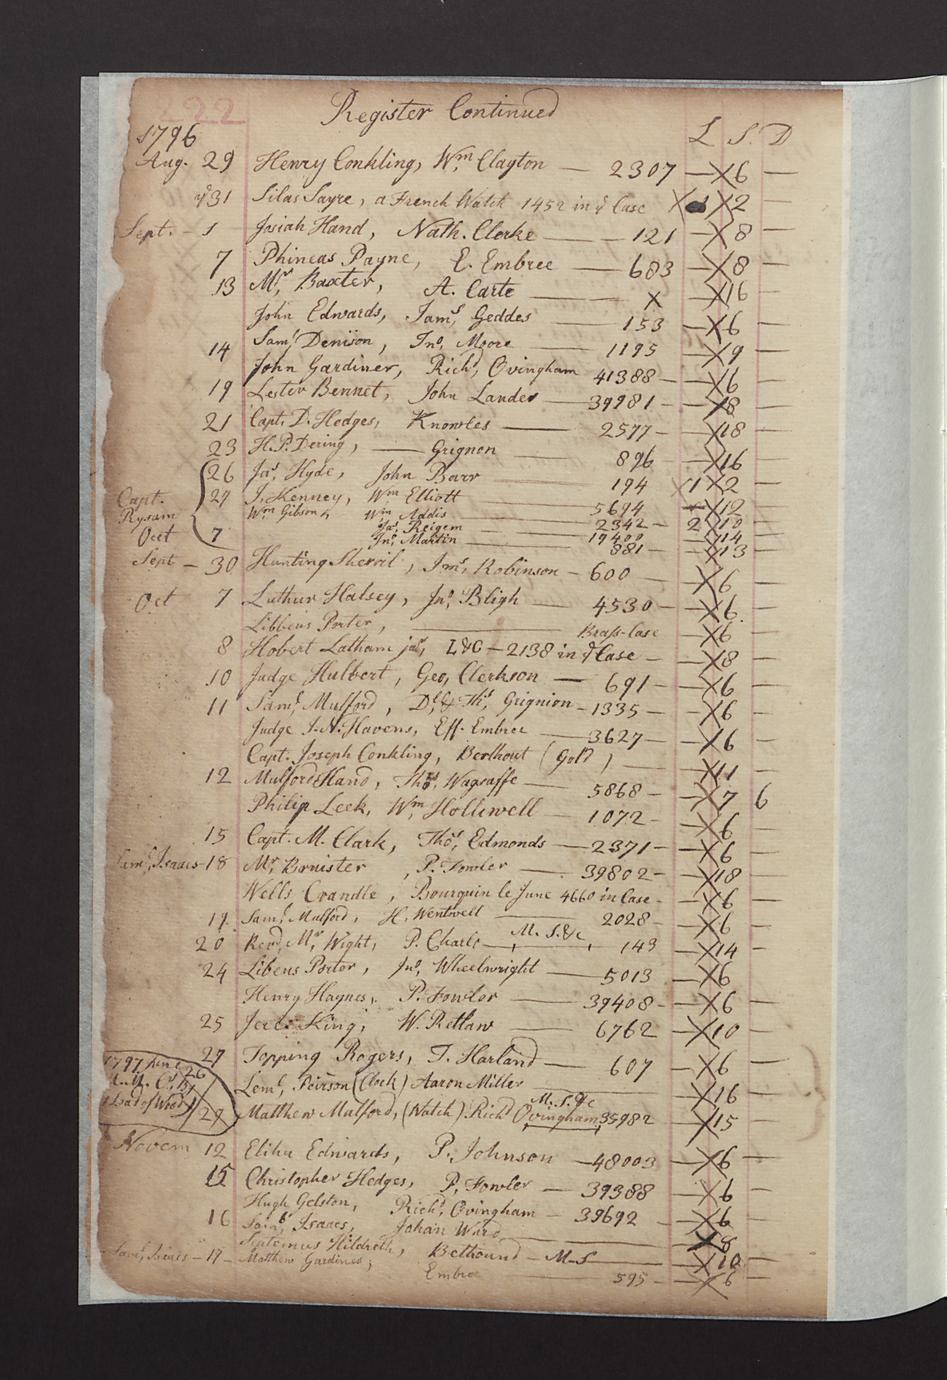 222
Register Continued
1796 L S. D
Aug. 29 Henry Conkling, Wm Clayton — 2307 — X 6 —
31 Silas Sayre, a French Watch 1452 in ye Case X 1 X 2 —
Sept. - 1 Josiah Hand, Nath. Clerke — 121 — X 8 —
7 Phineas Payne, E. Embree — 683 — X 8 —
13 Mr. Baxter, A. Carte — X — X 16 —
John Edwards, Jams. Geddes — 153 — X 6 —
14 Saml. Denison, Jno. Moore — 1195 — X 9 —
John Gardiner, Richd. Ovingham 41388 — X 6 —
19 Lester Bennet, John Lander — 39981 — X 8 —
21 Capt. D. Hedges, Knowles — 2577 — X 18 —
23 H. P. Dering, — Grignon 896 — X 16 —
26 Jas. Hyde, John Barr — 194 X 1 X 2 —
Capt. Rysam 27 J. Kenney, Wm Elliott — 5694 — X 12 —
Wm Gibson Wm Addis — 2342 — 2 X 10 —
Jas. Reigem — 19400 — X 14 —
Oct 7 Jno. Martin — 881 — X 13 —
Sept - 30 Hunting Sherril, Jms. Robinson — 600 — X 6 —
Oct 7 Luthur Halsey, Jno. Bligh — 4530 — X 6 —
Libbeus Porter, — Brass-Case — X 6 —
8 Hobert Latham jur. L&C — 2138 in ye Case — X 8 —
10 Judge Hulbert, Geo. Clerkson — 691 — X 6 —
11 Saml. Mulford, Dl. & Ths. Grignion — 1335 — X 6 —
Judge J. N. Havens, Eff. Embree — 3627 — X 6 —
Capt. Joseph Conkling, Berthout (Gold) — X 11 —
12 Mulford Hand, Thos. Wagsaffe — 5868 — X 7 6
Philip Leek, Wm Holliwell — 1072 — X 6 —
15 Capt. M. Clark, Thos. Edmonds — 2371 — X 6 —
Saml. Isaacs - 18 Mr. Bruister, P. Fowler — 39802 — X 18 —
Wells Crandle, Bourquin le June 4660 in Case — X 6 —
19. Saml. Mulford, H. Wentwell — 2028 — X 6 —
20 Revd. Mr. Wight, P. Charle — M. S. &c, 143 — X 14 —
24 Libeus Porter, Jno. Wheelwright — 5013 — X 6 —
Henry Haynes, P. Fowler — 39408 — X 6 —
25 King, W. Retlaw — 6762 — X 10 —
27 Topping Rogers, T. Harland — 607 — X 6 —
1797 June 26 Leml. Peirson (Clock) Aaron Miller — X 16 —
M. S. &c
Load of Wood 29 Matthew Mulford, (Watch) Richd Ovingham 35982 — X 15 —
Novem 12 Elihu Edwards, P. Johnson — 48003 — X 6 —
15 Christopher Hedges, P. Fowler — 39388 — X 6 —
Hugh Gelston, Richd. Ovingham — 39692 — X 6 —
16 Saml. Isaacs, Johan Ward — X 8 —
Septimus Hildreth, Bethound M-S — X 10 —
Saml. Isaacs - 19 - Matthew Gardiner, Embree — 595 — X 6 —